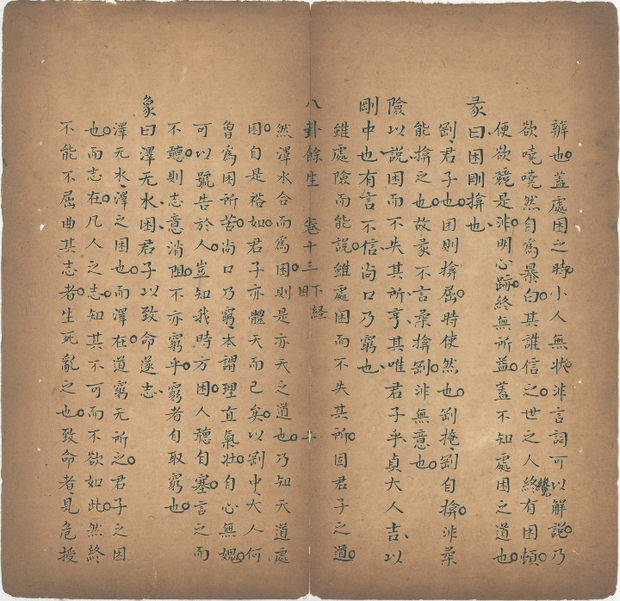 辨也蓋處困之時小人無狀非言詞可以解說乃
欲嘵嘵然自為暴白其誰信之世之人終有困頓
便欲競是非明心跡終無所益蓋不知處困之道也
彖曰困剛揜也
劉君子也困則揜屈時使然也劉掩劉自揜非柔
能揜之也故彖不言柔揜劉非無意也
險以說困而不失其所亨其唯君子乎貞大人吉以
剛中也有言不信尚口乃窮也
雖處險而能說雖處困而不失其所固君子之道
八卦餘生 卷十三 下經 困 十
然澤水合而為困則是亦天之道也乃知天道處
困自是裕如君子亦體天而已矣以劉中大人何
曾為困所苦尚口乃窮本謂理直氣壯自心無媿
可以號告於人豈知我時方困人聽自塞言之而
不聽則志意消阻不亦窮乎窮者自取窮也
象曰澤无水困君子以致命遂志
澤无水澤之困也而澤在道窮无所之君子之困
也而志在凡人之志知其不可而不欲如此然終
不能不屈曲其志者生死亂之也致命者見危授